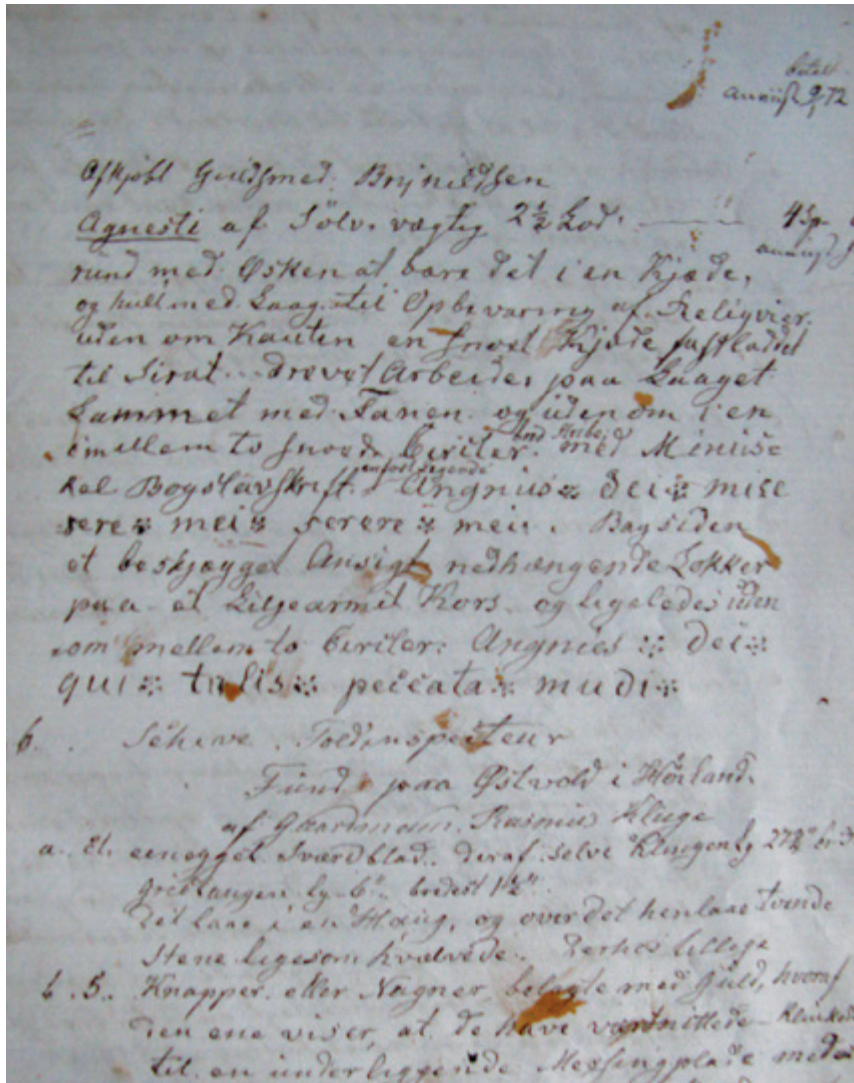 betalt
anviist 9/1 72
Afkjøbt Guldsmed Brynildsen
Agnesti af Sølv. vægtig 2½ Lod. 4 Sp
rund med Øsken at bære det i en Kjæde,
og hull med Laag til Opbevaring af Religvier.
uden om Kanten en snoet Kjæde fastladdet
til Sirat. drevet Arbeide, paa Laaget
Lammet med Fanen og uden om i en
imellem to snoede Cirkler med Minus-
kel Bogstavskrift. Angnius dei mise
rere mei serere meii. Bagsiden
et beskjægget Ansigt nedhængende Lokker
paa et Liljearmet Kors og ligeledes uden
om mellem to Cirkler: Angnies dei
qui tolis peccata mudi
6. Schive Toldinspecteur
Fund paa Østvold i Høiland
af Gaardmann Rasmus Kluge
a. Et eenegget Sværdblad. deraf selve Klingen lg 27½"
Grettangen lg 6" bredest 1½"
Det laae i en Haug, og over det henlaae tvende
Stene ligesom hvælvede. Derhos tillige
b. 5. Knapper eller Nagner belagte med Guld, hvoraf
den ene viser, at de have været nittede
til en underliggende Messingplade med